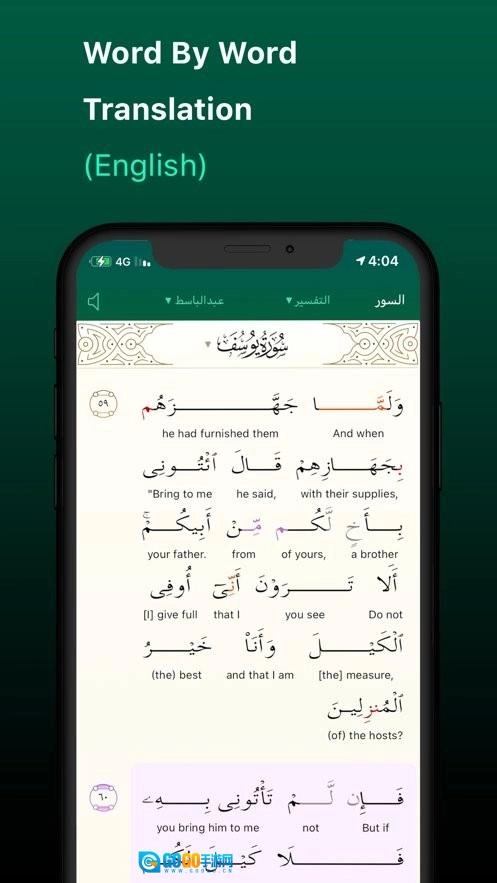 Word By Word
Translation
(English)
4G
4:04
السور التفسير ▾ عبدالباسط ▾
سُورَةُ يُوسُفَ ▾
وَلَمَّــا جَهَّــزَهُم ٥٩
And when he had furnished them
بِجَهَــازِهِمْ قَــالَ ٱئْتُــونِى
with their supplies, he said, "Bring to me
بِــأَخٍ لَّكُــم مِّــنْ أَبِيكُــمْۚ
a brother of yours, from your father.
أَلَا تَــرَوْنَ أَنِّىٓ أُوفِى
Do not you see that I [I] give full
ٱلْكَيْــلَ وَأَنَا۠ خَيْــرُ
[the] measure, and that I am (the) best
ٱلْمُنزِلِيــنَ
(of) the hosts?
فَــإِن لَّــمْ تَأْتُونِى بِــهِۦ ٦٠
But if not you bring him to me
فَــلَا كَيْــلَ لَكُــمْ
GOGO手游网
WWW.GOGO.CN